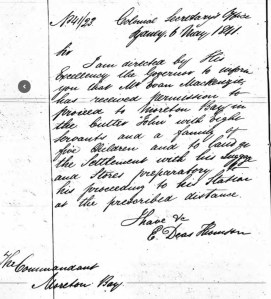 No 41/23 Colonial Secretary's Office
Sydney 6 May 1841.
Sir
I am directed by His
Excellency the Governor to inform
you that Mr Evan Mackenzie
has received permission to
proceed to Moreton Bay in
the Cutter "John" with eight
Servants and a family of
five Children and to land
the Settlement with his
and Stores preparatory to
his proceeding to his Station
at the prescribed distance.
I have &c
E. Deas Thomson
The Commandant
Moreton Bay